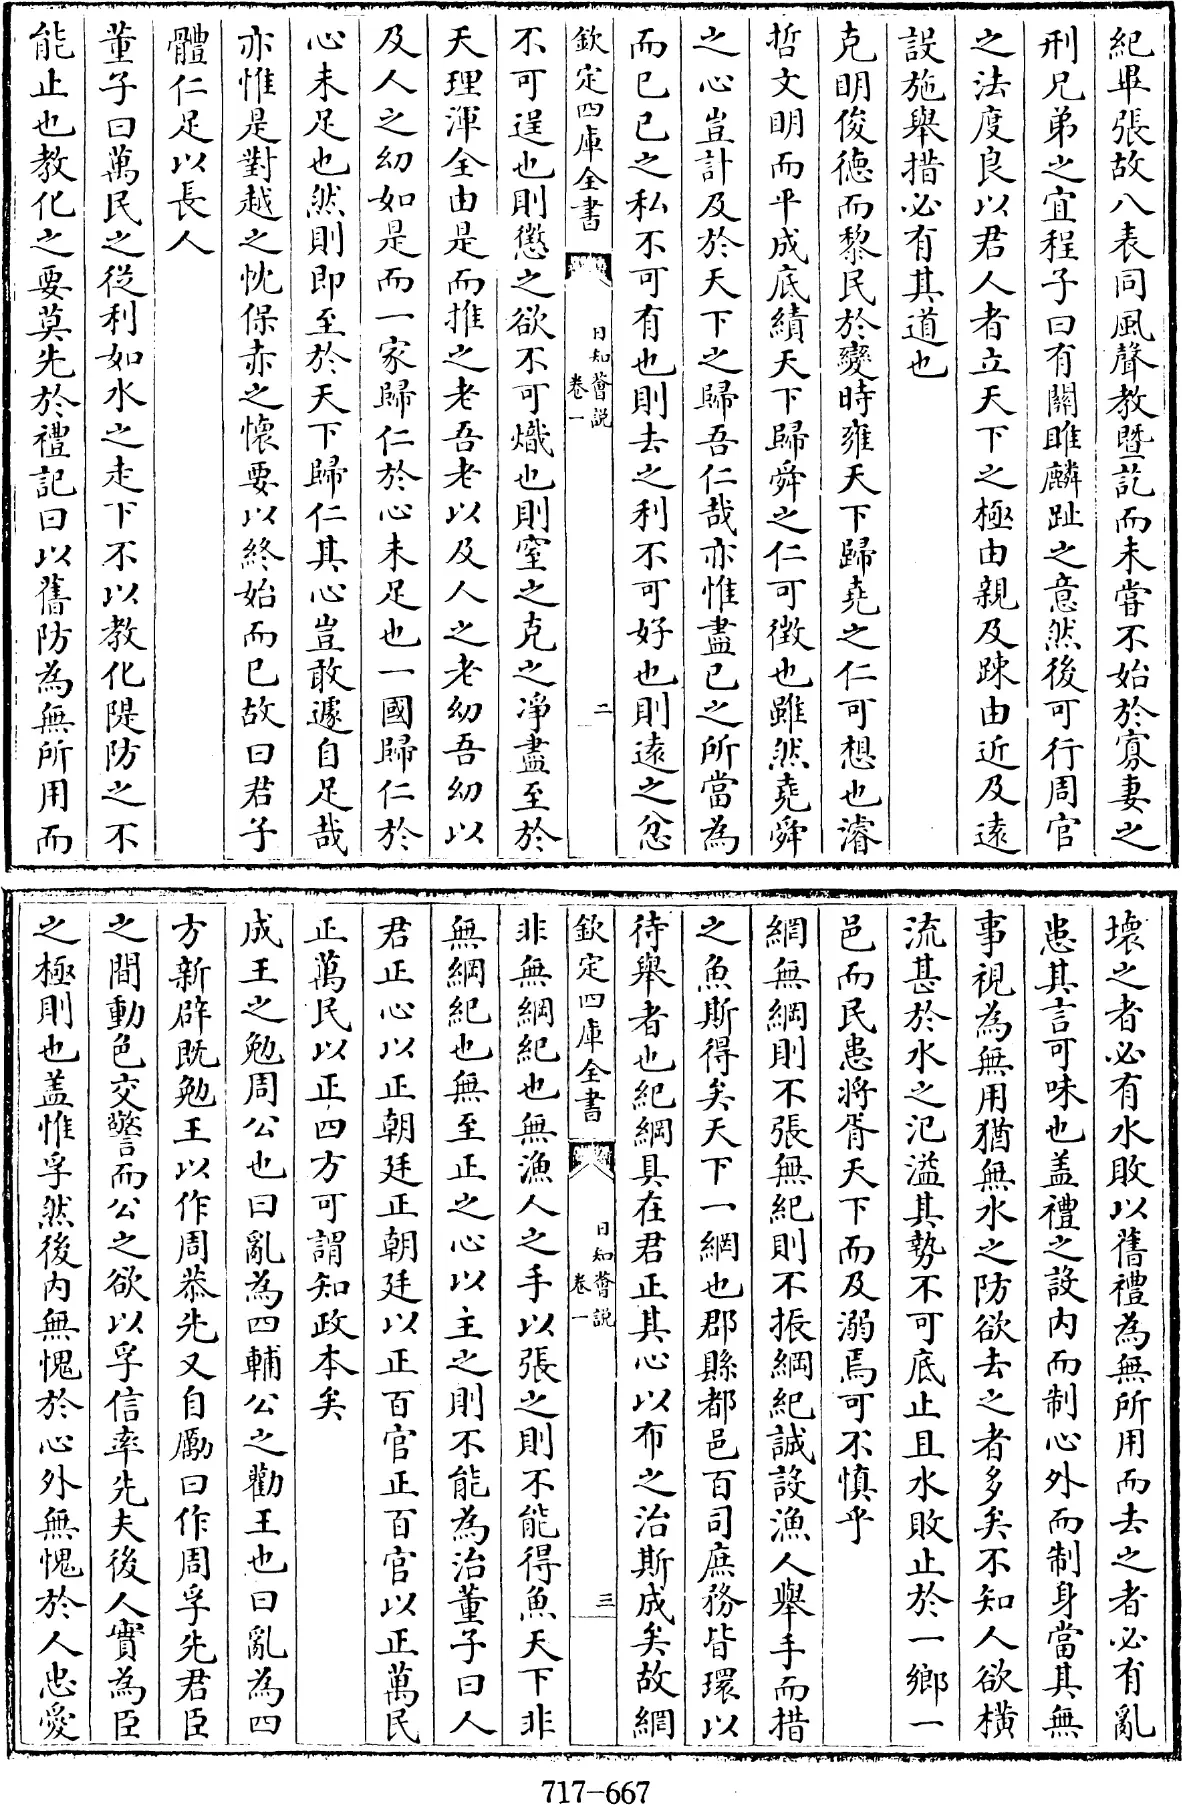 紀畢張故八表同風聲教暨訖而未嘗不始於寡妻之
刑兄弟之宜程子曰有關雎麟趾之意然後可行周官
之法度良以君人者立天下之極由親及踈由近及遠
設施舉措必有其道也
克明俊德而黎民於變時雍天下歸堯之仁可想也濬
哲文明而平成底績天下歸舜之仁可徴也雖然堯舜
之心豈計及於天下之歸吾仁哉亦惟盡已之所當為
而已已之私不可有也則去之利不可好也則逺之忿
欽定四庫全書
日知薈説
卷一
二
不可逞也則懲之欲不可熾也則窒之克之凈盡至於
天理渾全由是而推之老吾老以及人之老幼吾幼以
及人之幼如是而一家歸仁於心未足也一國歸仁於
心未足也然則即至於天下歸仁其心豈敢遽自足哉
亦惟是對越之忱保赤之懐要以終始而已故曰君子
體仁足以長人
董子曰萬民之從利如水之走下不以教化隄防之不
能止也教化之要莫先於禮記曰以舊防為無所用而
壞之者必有水敗以舊禮為無所用而去之者必有亂
患其言可味也盖禮之設内而制心外而制身當其無
事視為無用猶無水之防欲去之者多矣不知人欲横
流甚於水之氾溢其勢不可底止且水敗止於一鄉一
邑而民患將胥天下而及溺焉可不慎乎
網無綱則不張無紀則不振綱紀誠設漁人舉手而措
之魚斯得矣天下一網也郡縣都邑百司庶務皆環以
待舉者也紀綱具在君正其心以布之治斯成矣故網
欽定四庫全書
日知薈説
卷一
三
非無綱紀也無漁人之手以張之則不能得魚天下非
無綱紀也無至正之心以主之則不能為治董子曰人
君正心以正朝廷正朝廷以正百官正百官以正萬民
正萬民以正四方可謂知政本矣
成王之勉周公也曰亂為四輔公之勸王也曰亂為四
方新辟既勉王以作周恭先又自勵曰作周孚先君臣
之間動色交警而公之欲以孚信率先夫後人實為臣
之極則也盖惟孚然後内無愧於心外無愧於人忠愛
717-667